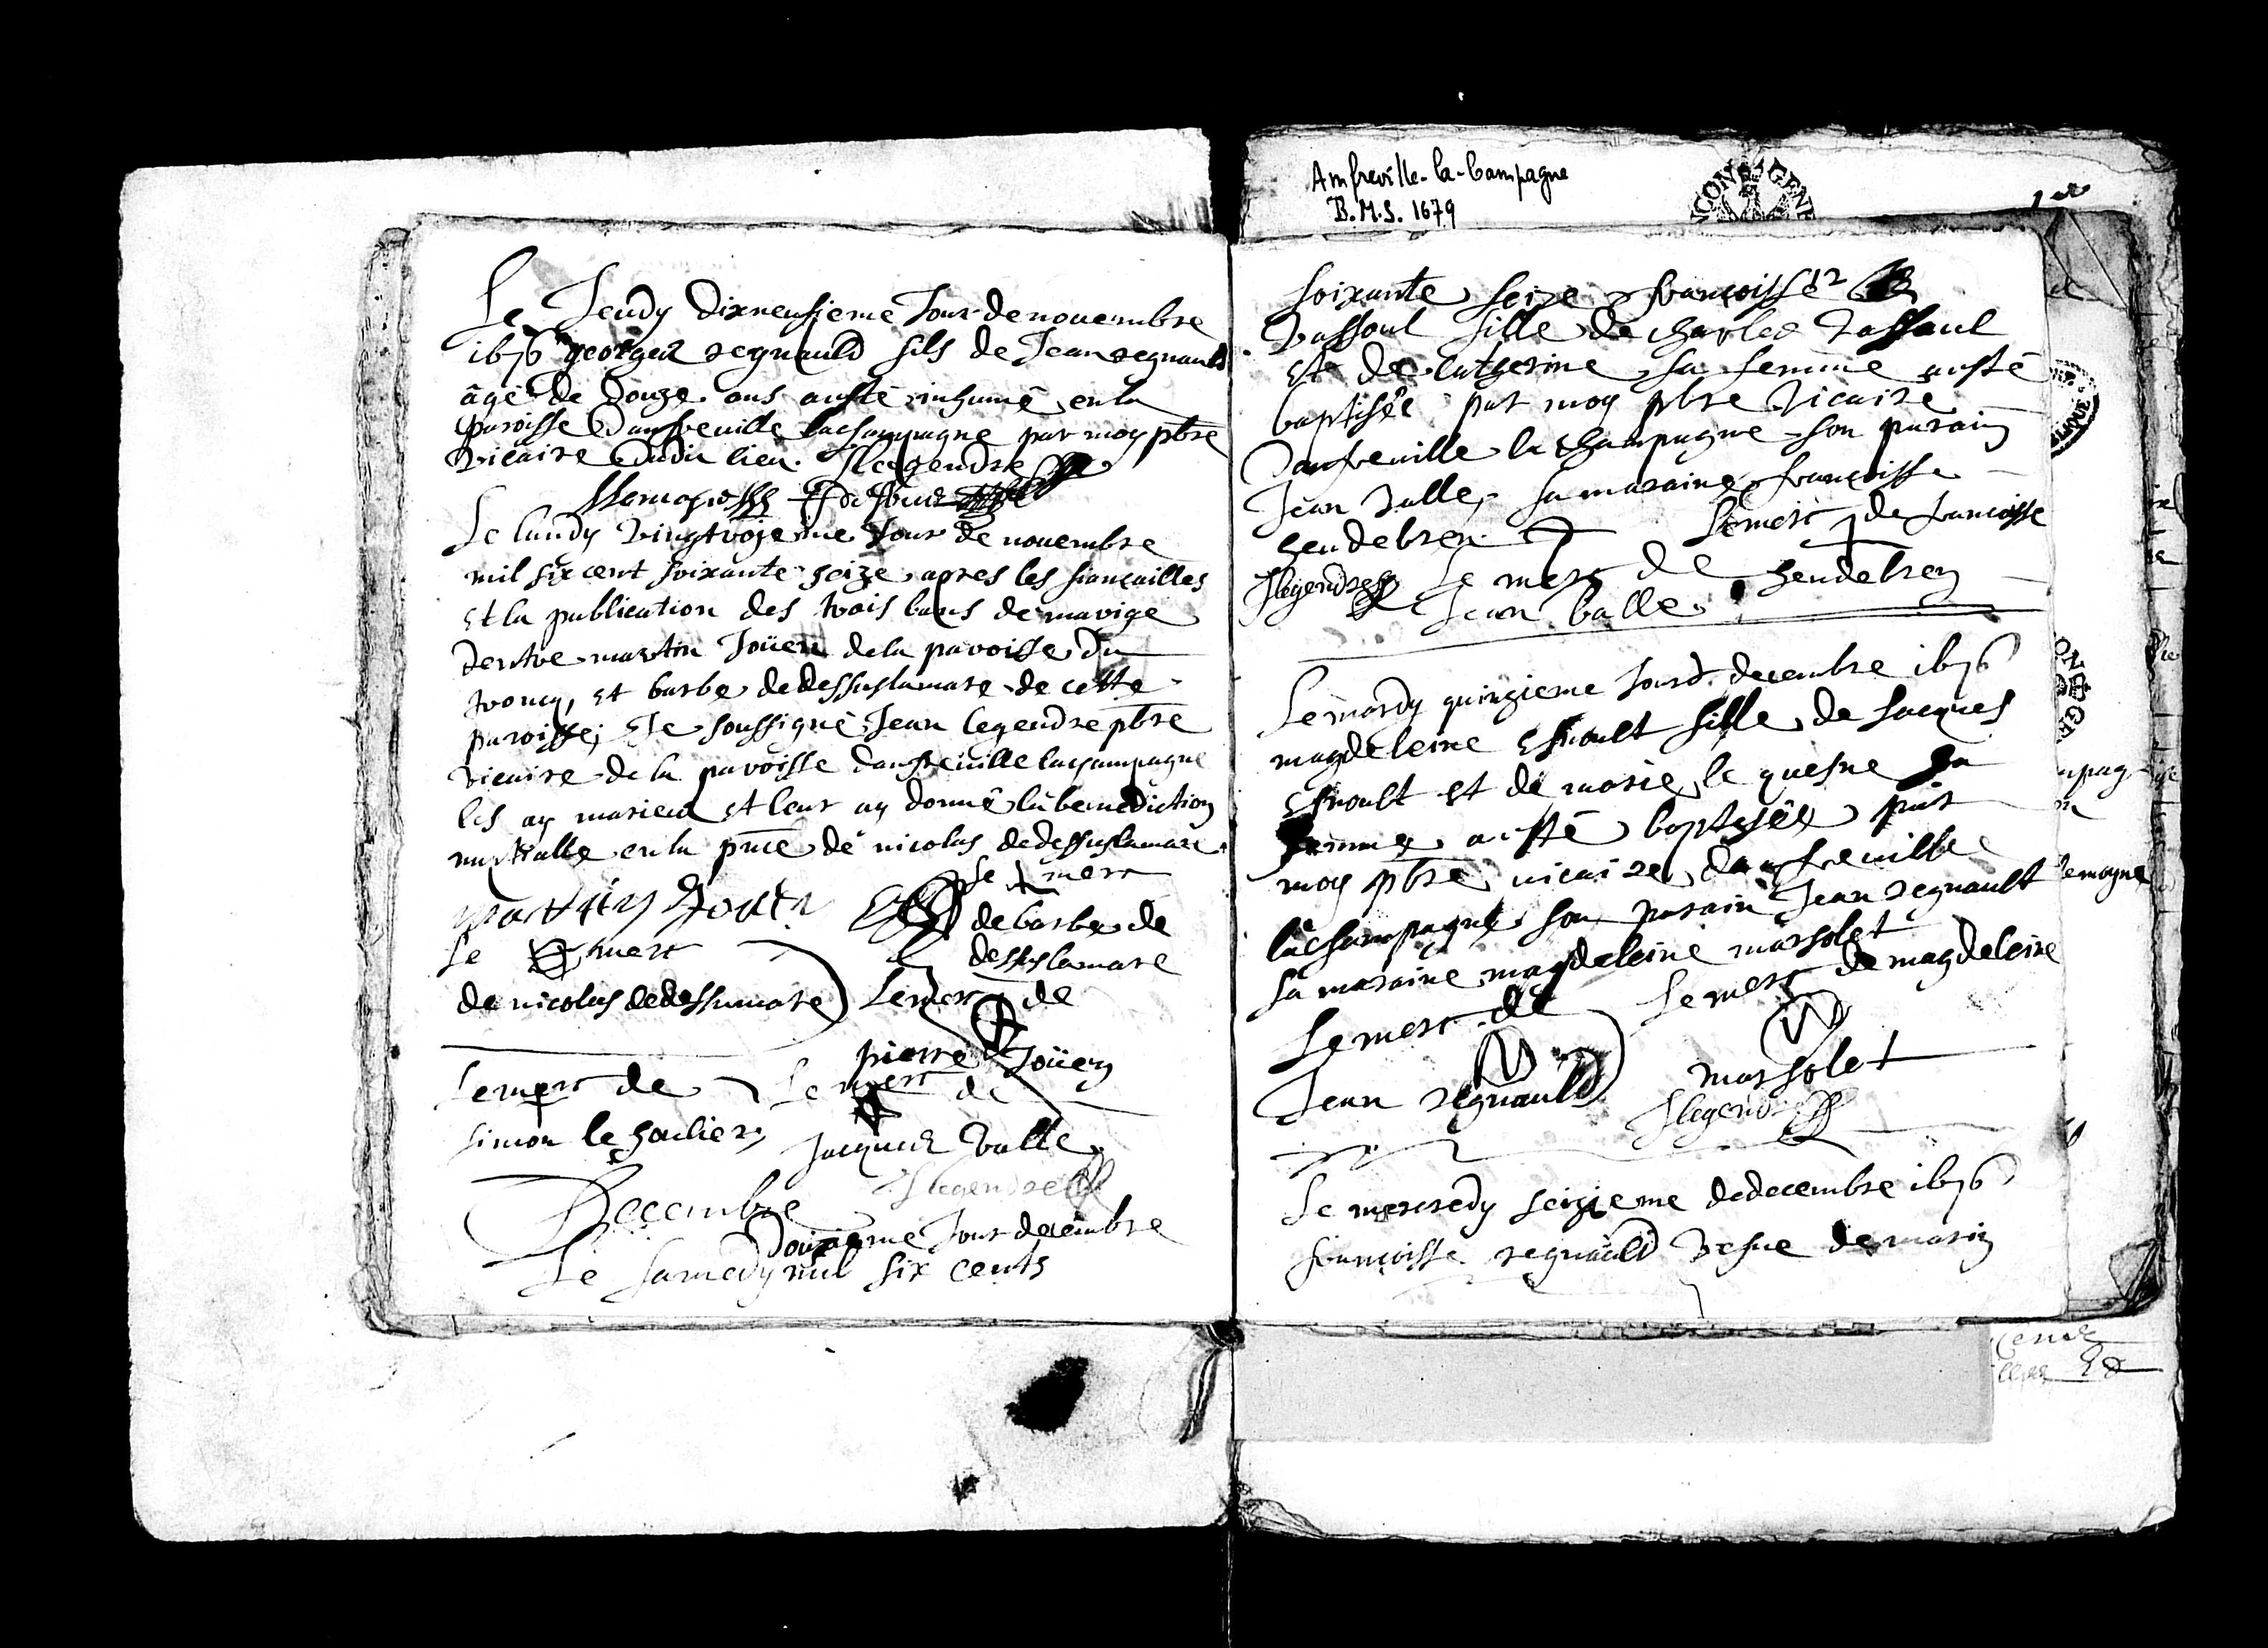 Le Jeudy dixneufieme Jour de nouembre
1676 georges regnauld fils de Jean regnauld
âgé de douze ans a esté inhumé en la
paroisse Damfreuille lachampagne par moy pbre
vicaire dudit lieu. Jlegendre
Le lundy vingtroizieme Jour de nouembre
mil six cent soixante seize apres les fiançailles
et la publication des trois bans de marige
dentre martin Joüen de la paroisse du
troncq, et barbe dedessuslamare de cette
paroisse; Je soussigné Jean legendre pbre
vicaire de la paroisse damfreuille lachampagne
les ay mariez et leur ay donné la benediction
nuptialle en la pnce de nicolas dedessuslamare
le merc
martin Jouen
de barbe de
dessuslamare
Le merc
de nicolas dedessumare
Le merc de
pierre Joüen
Le merc de
simon le houlier
Le merc de
Jacques valle
Jlegendre
Decembre
Le samedy douzieme Jour decembre
mil six cents
Amfreville-la-Campagne
B.M.S. 1679
1er
soixante seize françoisse
Vassoul fille de charles Vassoul
et de catherine sa femme a esté
baptisée par moy pbre vicaire
Damfreuille la champagne son parain
Jean valle, sa maraine françoisse
heudebren
Le merc de francoisse
heudebren
Jlegendre
Le merc de
Jean valle
Le mardy quinzieme Jour d. decembre 1676
magdeleine Esnoult fille de Jacques
Esnoult et de marie le quesne sa
femme a esté baptisée par
moy pbre vicaire damfreuille
lachampagne son parain Jean regnault
sa maraine magdeleine marsolet
Le merc de
Jean regnauld
Le merc de magdeleine
marsolet
Jlegendre
Le mercredy seizieme de decembre 1676
françoisse regnauld vefue de marin